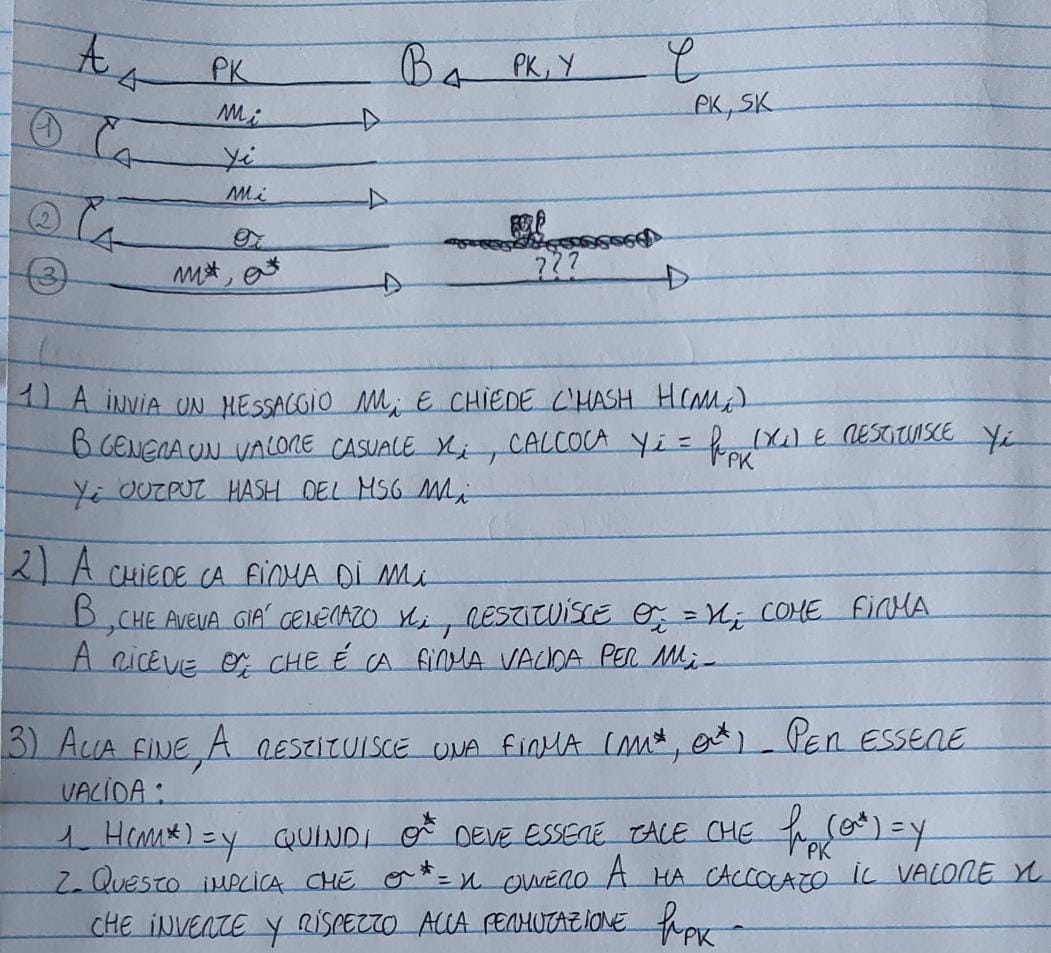 A PK B PK, Y C
PK, SK
1 mi
yi
mi
2 σi
3 m*, σ* ???
1) A INVIA UN MESSAGGIO mi E CHIEDE L'HASH H(mi)
B GENERA UN VALORE CASUALE xi, CALCOLA yi = fPK(xi) E RESTITUISCE yi
yi OUTPUT HASH DEL MSG mi
2) A CHIEDE LA FIRMA DI mi
B, CHE AVEVA GIÁ GENERATO xi, RESTITUISCE σi = xi COME FIRMA
A RICEVE σi CHE É LA FIRMA VALIDA PER mi-
3) ALLA FINE, A RESTITUISCE UNA FIRMA (m*, σ*)- PER ESSERE
VALIDA:
1- H(m*)=y QUINDI σ* DEVE ESSERE TALE CHE fPK(σ*)=y
2- QUESTO IMPLICA CHE σ*=x OVVERO A HA CALCOLATO IL VALORE x
CHE INVERTE y RISPETTO ALLA PERMUTAZIONE fPK-